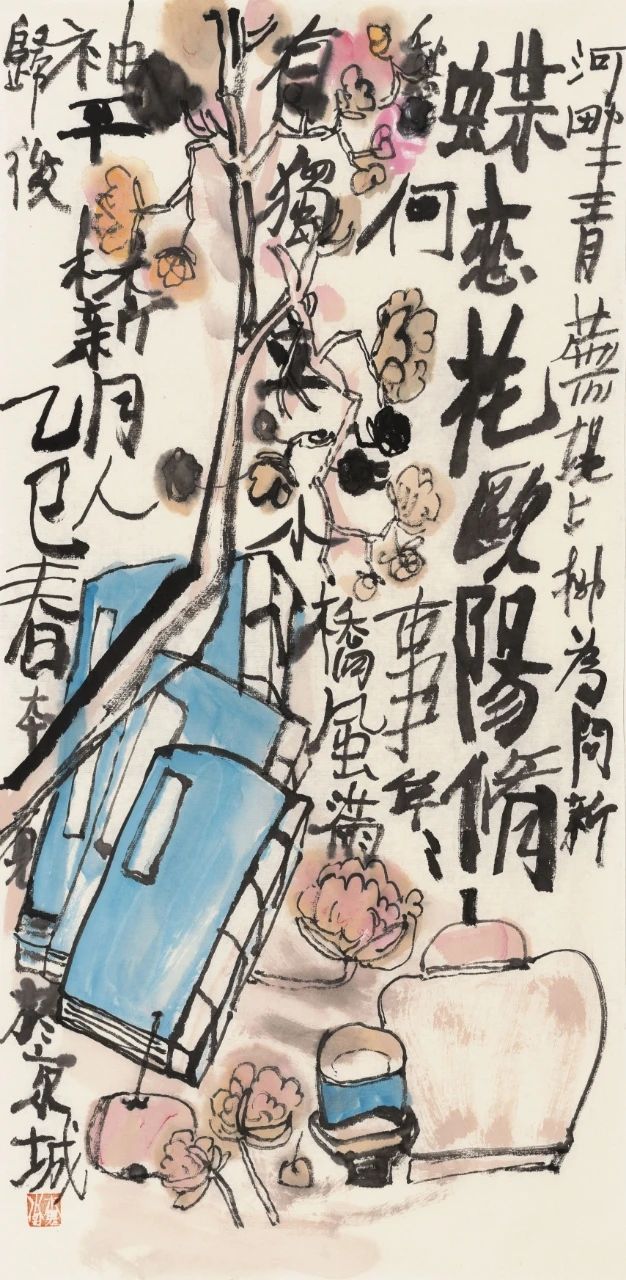 河畔青蕪堤上柳為問新
蝶恋花歐陽脩
愁何事年〻
有獨立小橋風滿
袖平林新月人
歸後
乙巳春
於京城